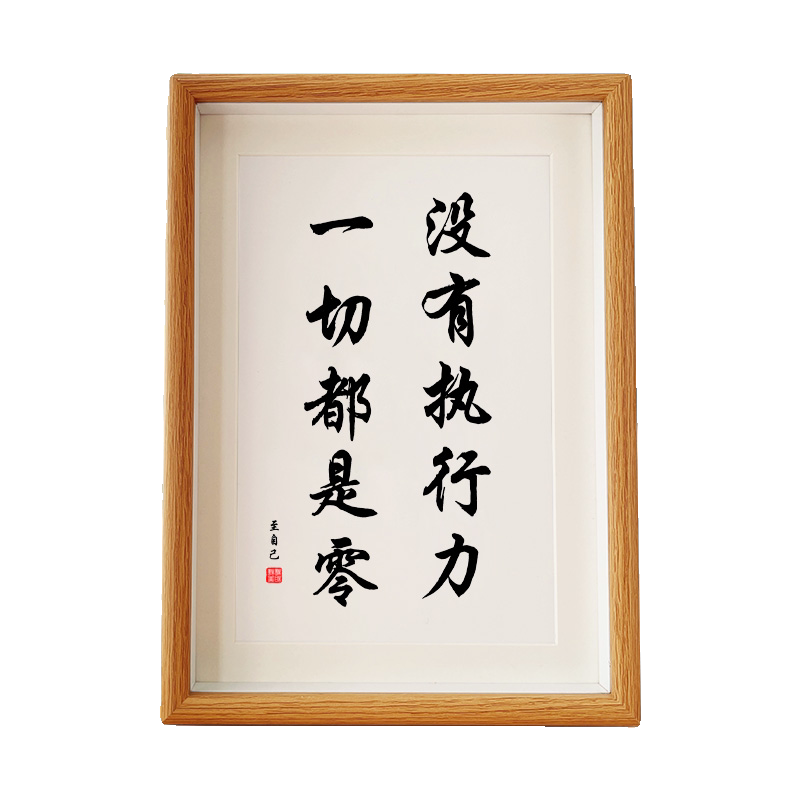 没有执行力
一切都是零
至自己